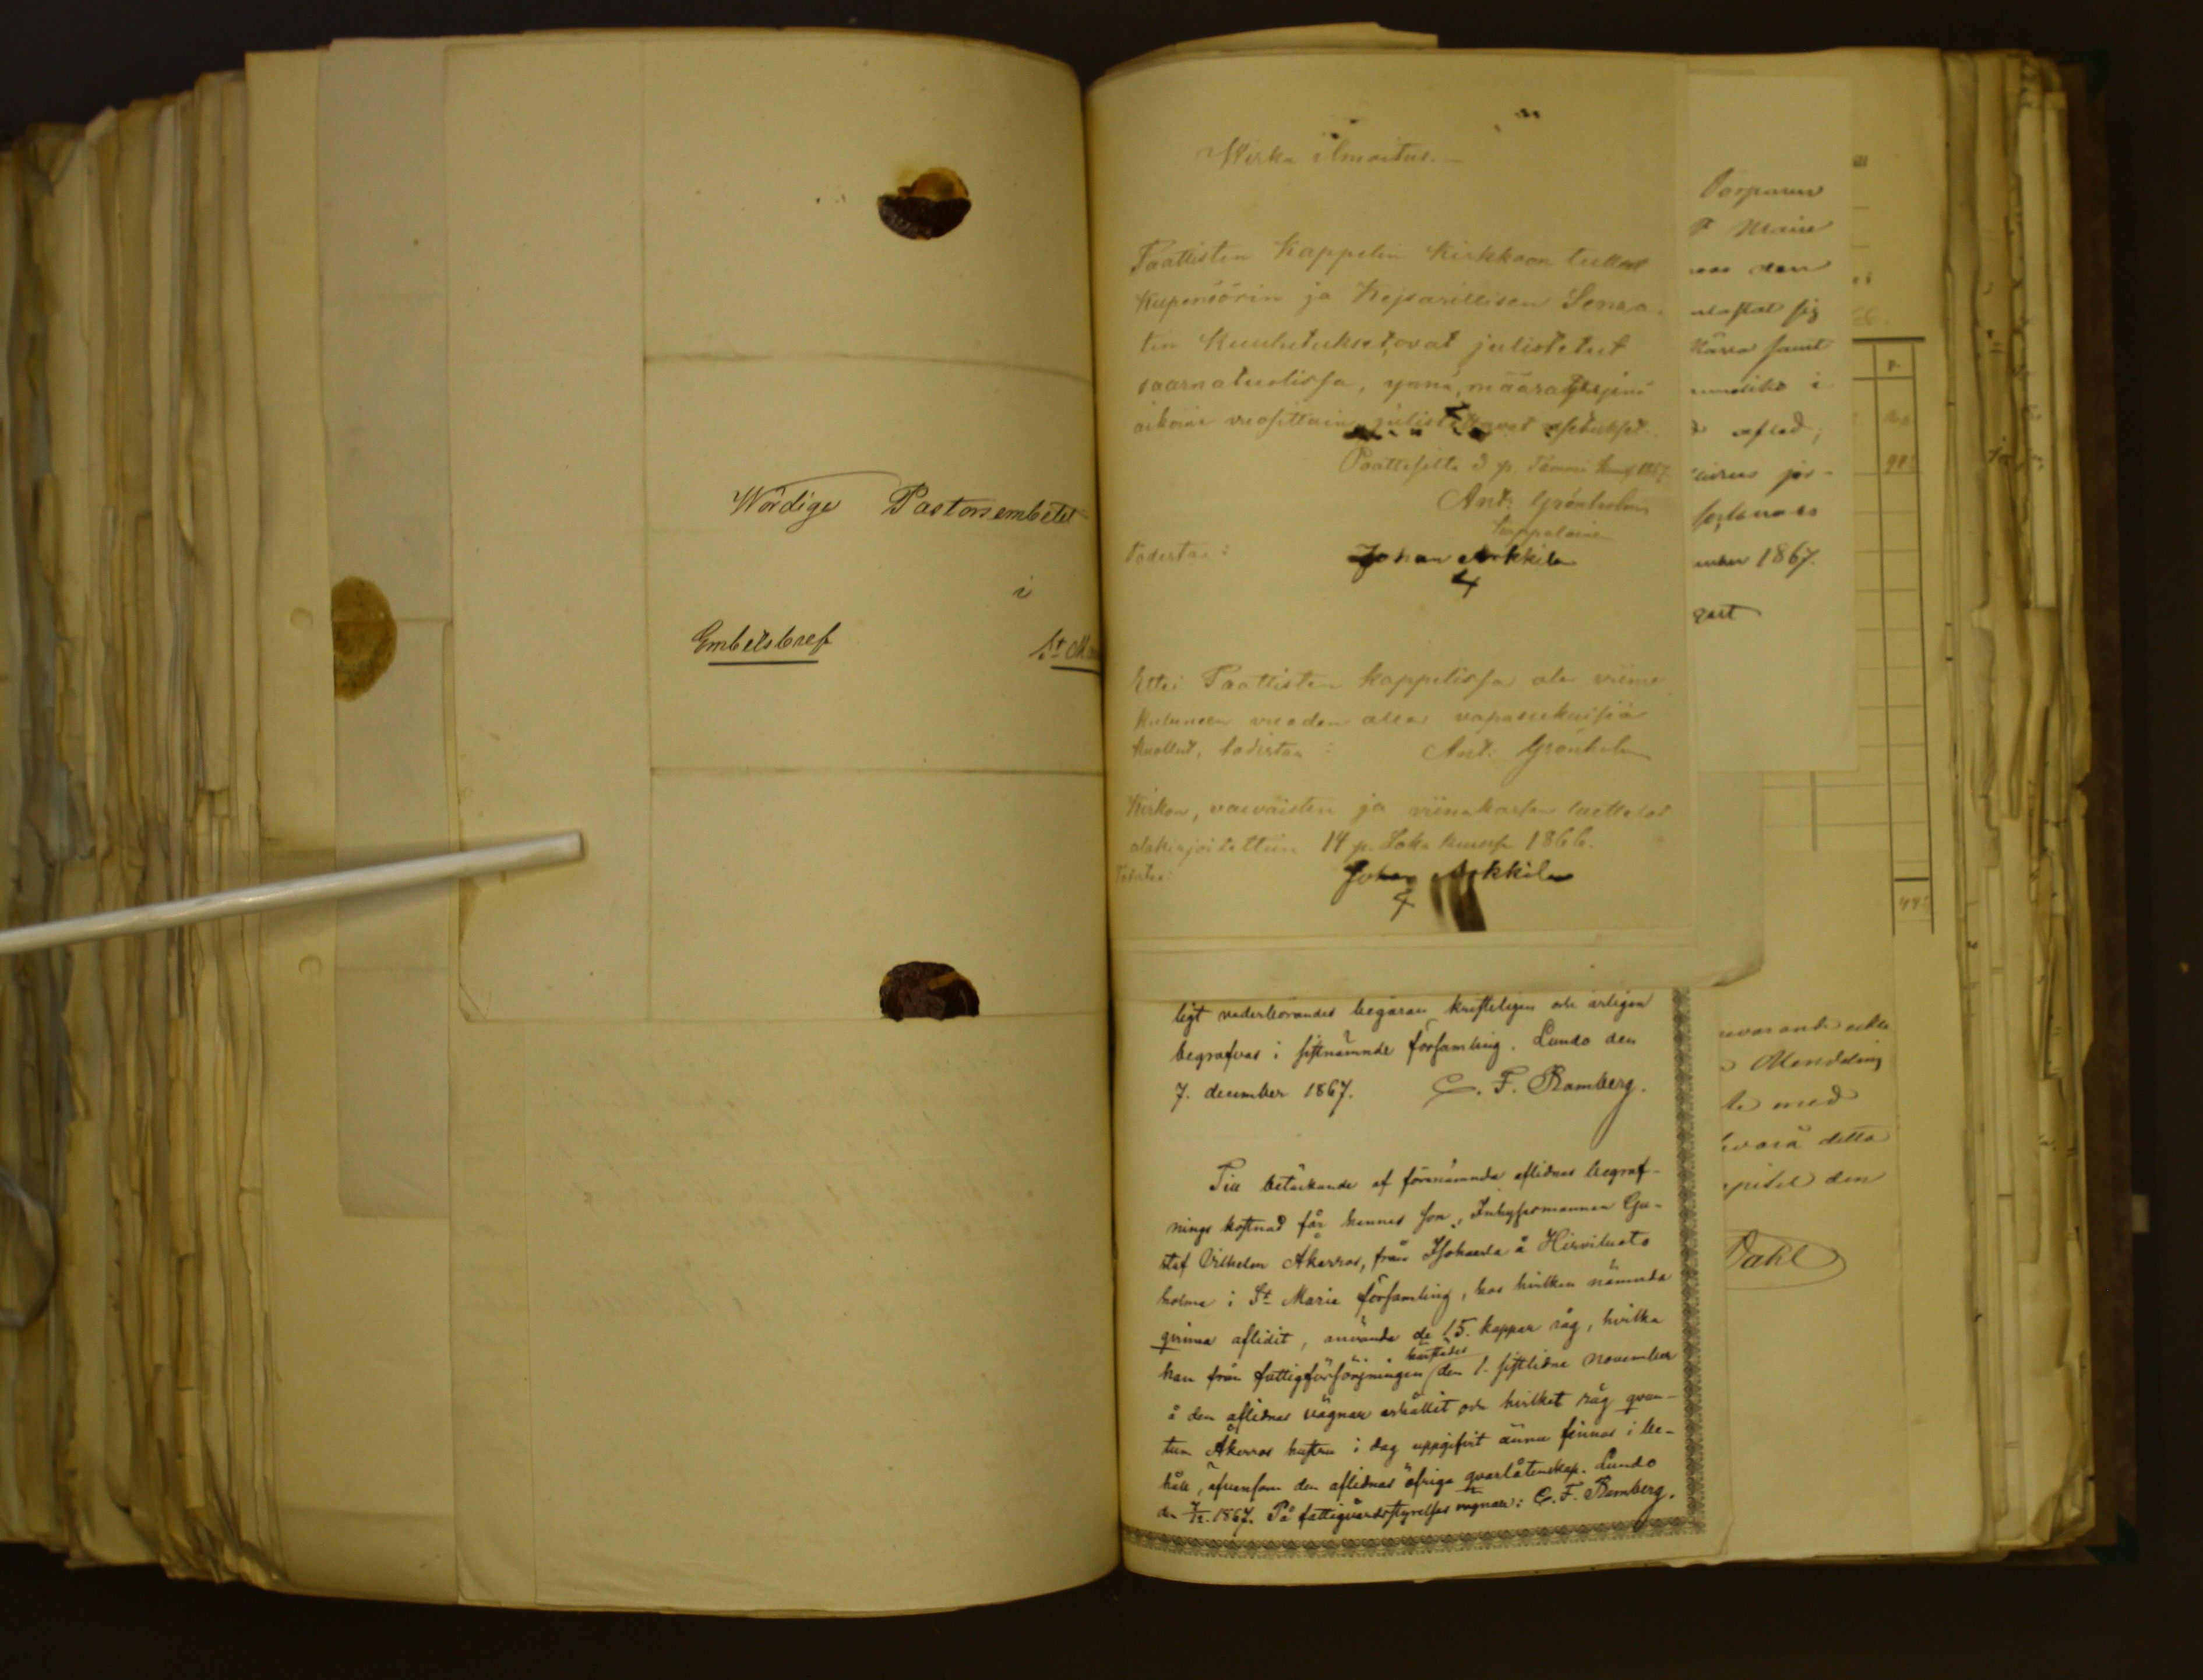 Wördige Pastorsembetet
i
Embetsbref St Mar
Wirka ilmoitus.
Paattisten Kappelin Kirkkoon tullet
Kupernöörin ja Kejsarillisen Senaa-
tin Kuulutukset, ovat julistetut
saarnatuolissa, ynnä määrättyjenä
aikoina vuosittain julistettavat asetukset.
Paattisilla 3 p. Tammi kuus 1867.
Ant. Grönholm
kappalainen
Todistaa: Johan Arkkila
Ettei Paattisten kappelissa ole viime
kuluneen vuoden alla vapasukuisia
kuollut, todistaa: Ant. Grönholm
Kirkon, vaivaisten ja viinakassan luettelot
alakirjoitettiin 14 p. Loka kuussa 1866.
Todistaa: Johan Arkkila
ligt vederbörandes begäran kristeligen och ärligen
begrafvas i sistnämnde församling. Lundo den
7. december 1867. C. F. Bamberg.
Till betäckande af förenämnda aflidnas begraf-
nings kostnad får hennes son, Inhysesmannen Gu-
staf Vilhelm Åkerros, från Isohaarla å Hirviluoto
holme i St Marie församling, hos hvilken nämnda
qvinna aflidit, använda de 15. kappar råg, hvilka
han från fattigförsörjningen härstädes den 1. sistlidne november
å den aflidnas vägnar erhållit och hvilket råg qvan-
tum Åkerros hustru i dag uppgifvit ännu finnas i be-
håll, äfvensom den aflidnas öfriga qvarlåtenskap. Lundo
den 7/12. 1867. På fattigvårdsstyrelses vägnar: C. F. Bamberg.
Torparen
den
samt
aflad;
1867.
Mendeling
med
detta
den
Dahl